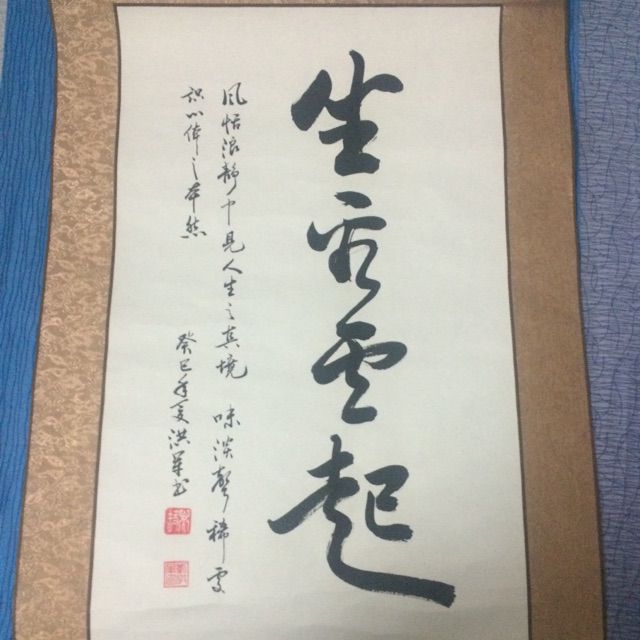 坐看雲起
風恬浪靜中見人生之真境 味淡聲稀處
識心體之本然
癸巳年夏洪軍书